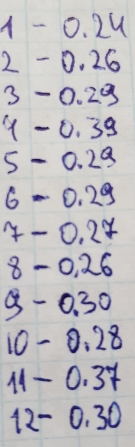 1 - 0.24
2 - 0.26
3 - 0.29
4 - 0.39
5 - 0.29
6 - 0.29
7 - 0.27
8 - 0.26
9 - 0.30
10 - 0.28
11 - 0.37
12 - 0.30